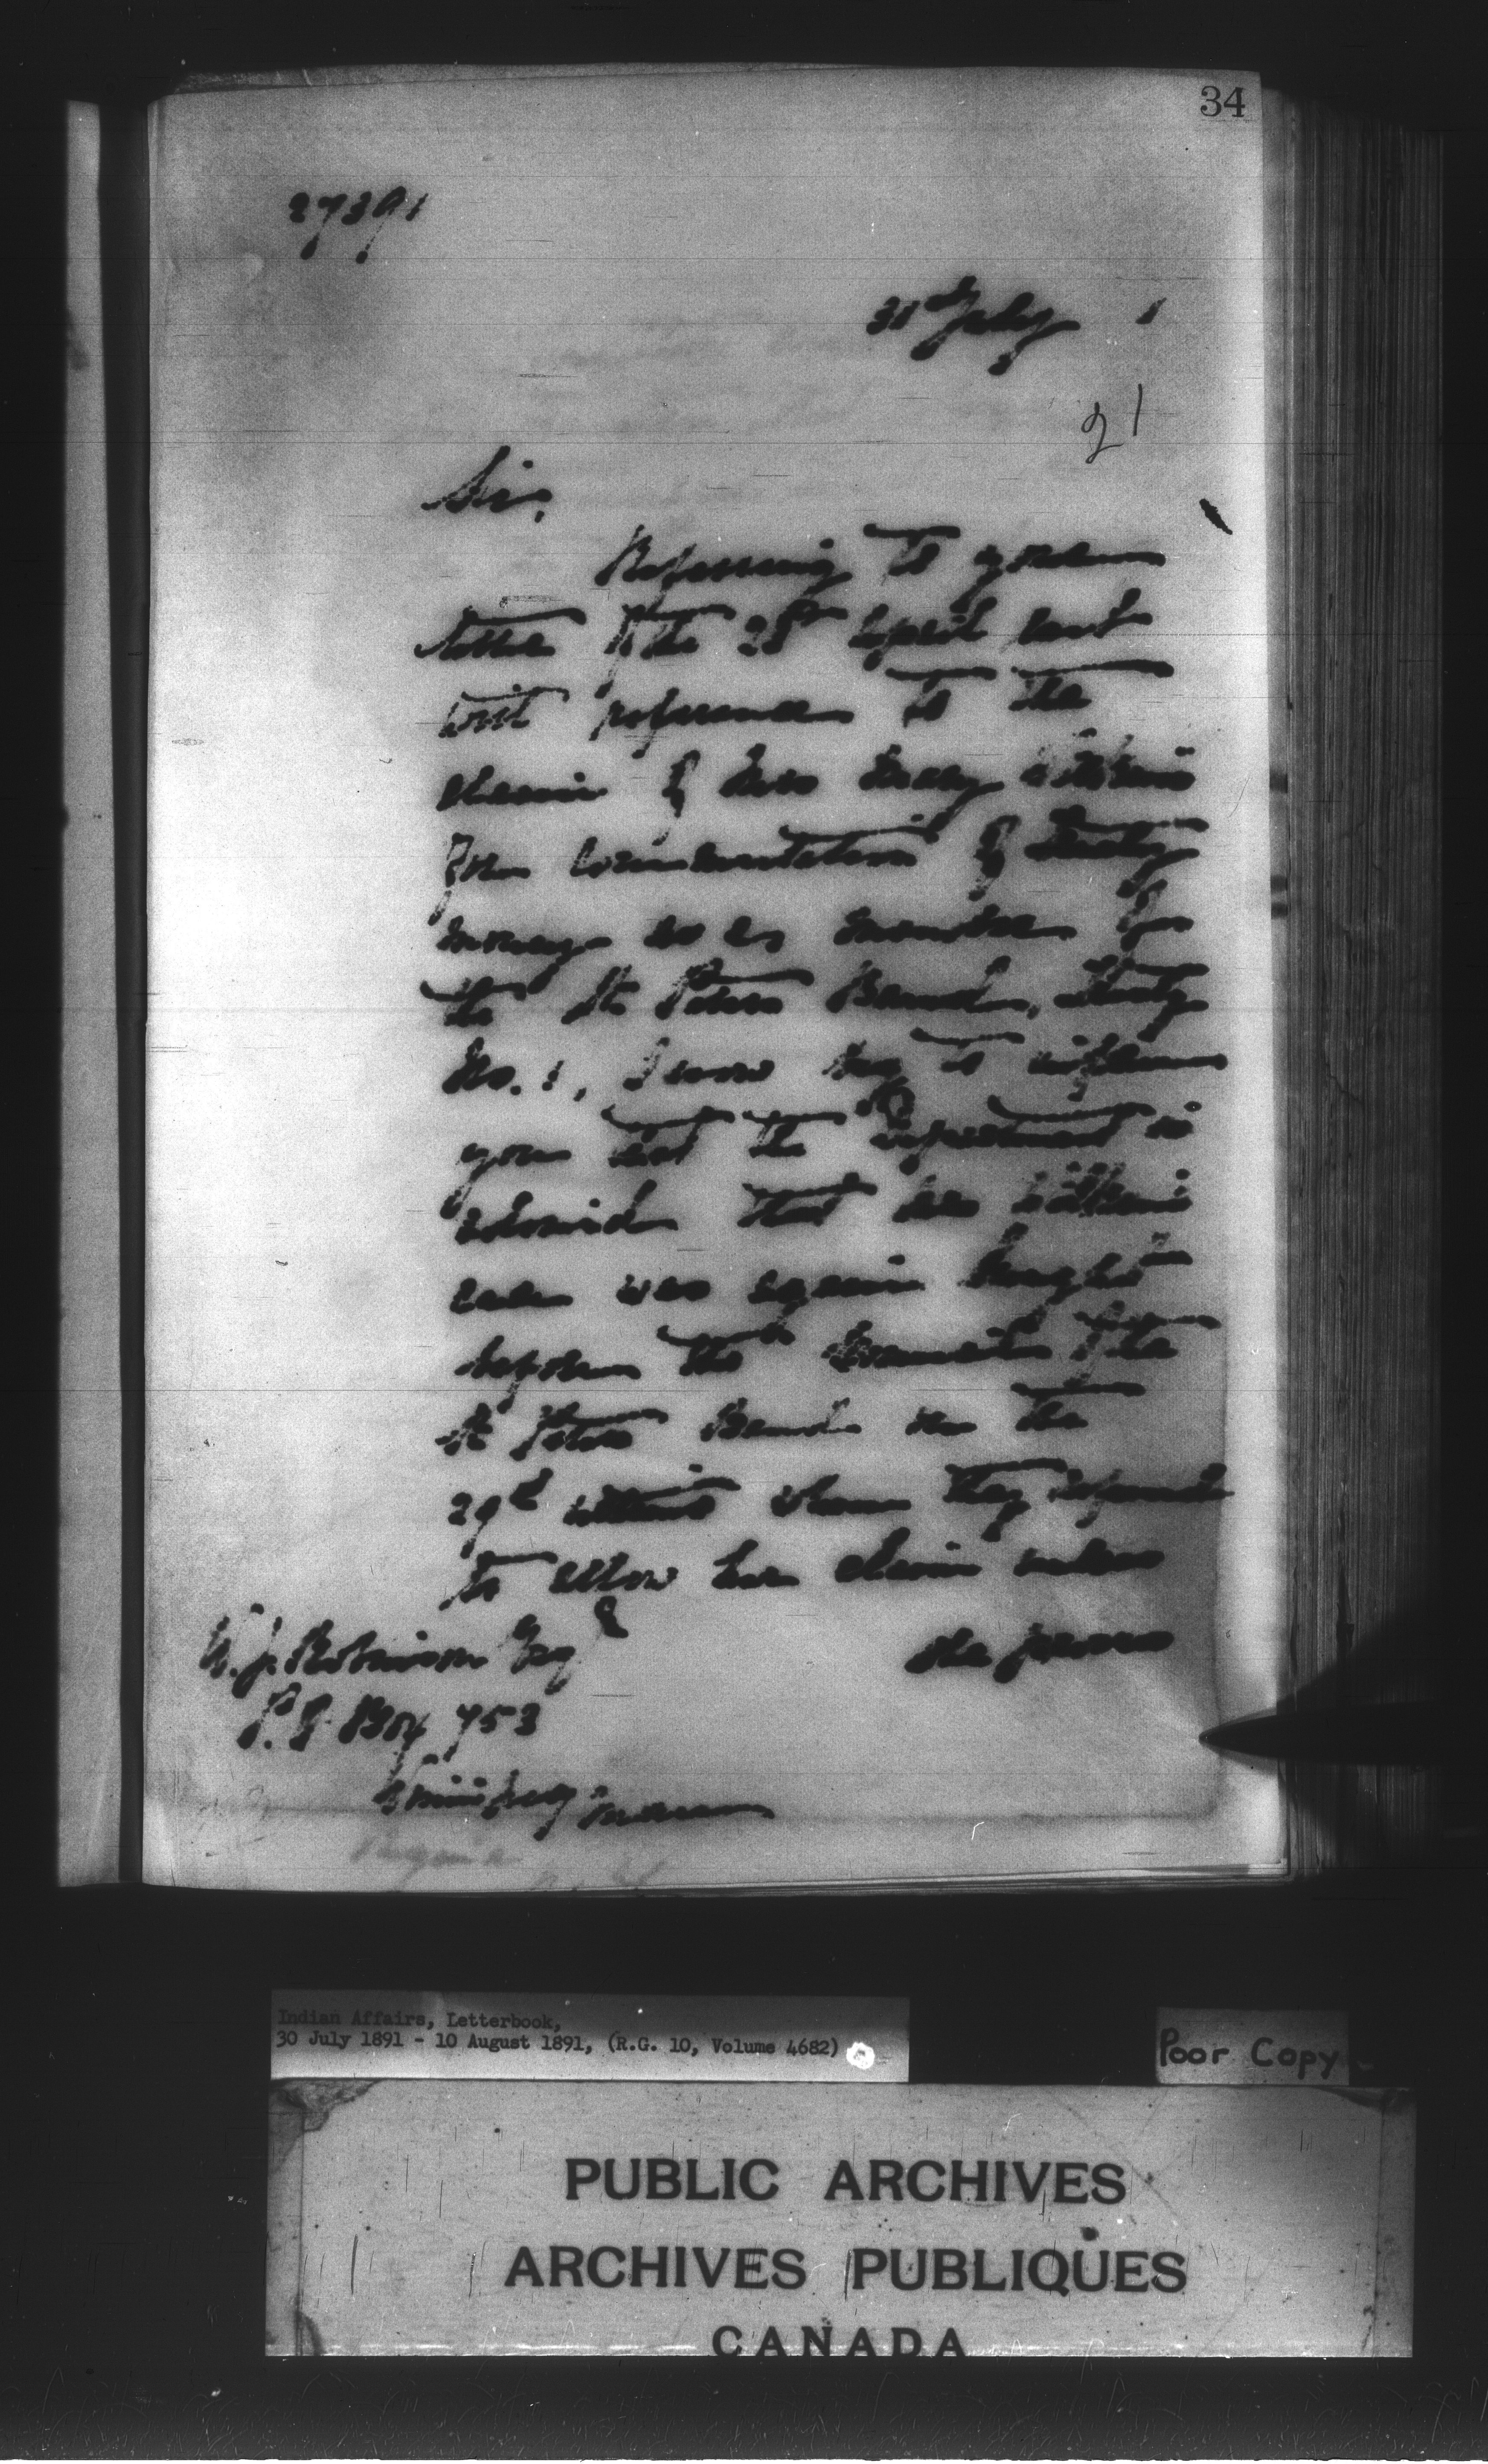 34
27391
31st July 1
91
Sir,
Referring to your
letter of the 28th April last
with reference to the
claim of Mrs
for commutation of Treaty
money as a member of
the St Peters Band, Treaty
No. 1, I now beg to inform
you that the Department is
advised that her
case was again brought
before the Council of the
St Peters Band on the
29th ultimo when they refused
to allow her claim unless
the previous
W. J. Robinson Esqr
P.O. Box 753
Winnipeg Man
Indian Affairs, Letterbook,
30 July 1891 - 10 August 1891, (R.G. 10, Volume 4682)
Poor Copy
PUBLIC ARCHIVES
ARCHIVES PUBLIQUES
CANADA